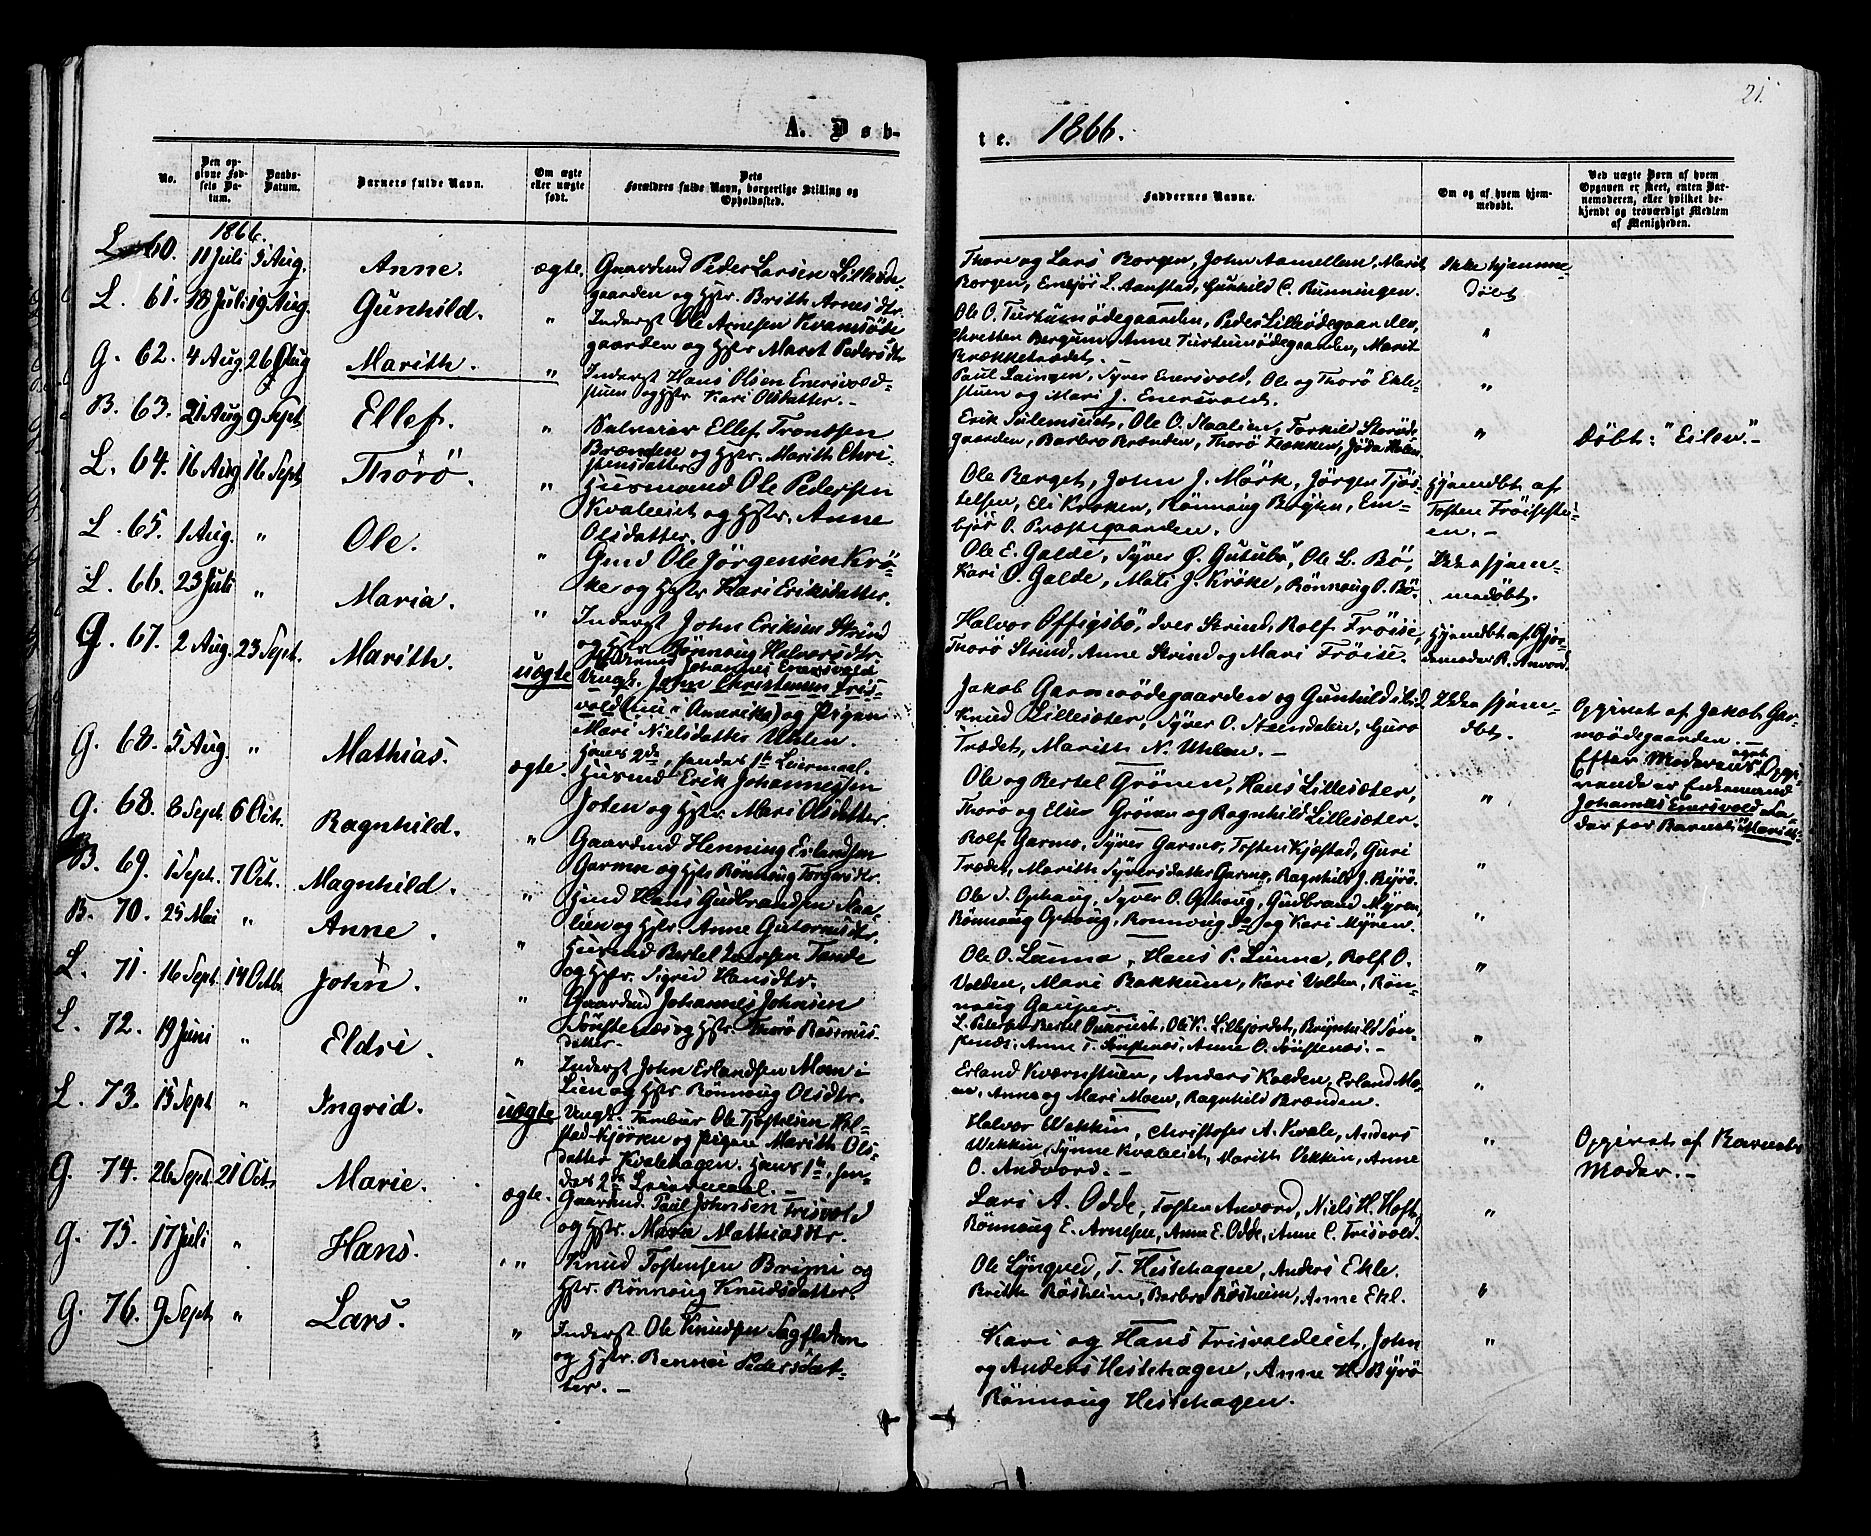 21.
A. Døb-
te. 1866.
No.
Den op-
givne Fød-
sels Da-
tum.
Daabs-
Datum.
Barnets fulde Navn.
Om ægte
eller uægte
født.
Dets
Forældres fulde Navn, borgerlige Stilling og
Opholdssted.
Faddernes Navne.
Om og af hvem hjem-
medøbt.
Ved uægte Børn af hvem
Opgaven er skeet, enten Bar-
nemoderen, eller hvilket be-
kjendt og troværdigt Medlem
af Menigheden.
1866.
L. 60. 11 Juli 5 Aug. Anne. ægte. Gaardmd Peder Larsen Lilleøde-
gaarden og Hstr. Brith Arnesdtr.
Thore og Lars Borgen, John Aamellem, Marit
Borgen, Embjør L. Aanstad, Gunhild C. Runningen.
Ikke hjemme-
døbt
L. 61. 18 Juli 19 Aug. Gunhild. " Inderst Ole Arnesen Kvamsøde
gaarden og Hstr. Maret Pedersdtr
Ole O. Turtumødegaarden, Peder Lilleødegaarden,
Christen Bergum, Anne Turtumødegaarden, Marit
Brækketrædet. "
G. 62. 4 Aug. 26 Aug Marith. " Inderst Hans Olsen Enersvold-
stuen og Hstr Kari Olsdatter. -
Paul Rusngen, Syver Enersvold, Ole og Thorø Ekle-
stuen og Mari J. Enersvold. "
B. 63. 21 Aug 9 Sept Ellef. " Selveier Ellef Trondsen
Brænden og Hstr. Marith Chri-
stensdatter
Ole O. Staalien, Torkild Storøde-
gaarden, Barbro Brænden, Thorø Flækken, "
Døbt: "Eilev". -
L. 64. 16 Aug 16 Sept Thorø. " Husmand Ole Pedersen
Kvaleeiet og Hstr. Anne
Olsdatter.
Ole Berget, John J. Mørk, Jørgen Tjøs-
telsen, Eli Kroken, Rønnaug Brøyten, Em-
bjør O. Præstegaarden.
Hjemdbt af
Tosten Frøisesteu-
en. -
L. 65. 1 Aug. " Ole. " Gmd Ole Jørgensen Krø-
ke og Hstr Kari Eriksdatter.
Ole E. Galde, Syver Ø. Gutulo", Ole L. Bø,
Kari O. Galde, Mali J. Krøke, Rønnaug O. Bø.
Ikke hjem-
medøbt.
L. 66. 23 Juli " Maria. " Inderst John Eriksen Skrind
og Hstr Rønnaug Halvorsdtr
Halvor Offigsbø, Iver Skrind, Rolf Frøise,
Thorø Skrind, Anne Skrind og Mari Frøise.
Hjemdbt af Gjor-
demoder R. Anvord.
G. 67. 2 Aug. 23 Sept. Marith. uægte Enkemd Johannes Enersvold
Ungk. John Christensen Tris-
vold (nu i Amerika) og Pigen
Mari Nielsdatter Uhlen.
Hans 2de, hendes 1te Leiermaal.
Jakob Garmoødegaarden og Gunhild ibid,
Knud Lillesæter, Syver O. Steindalen, Guro
Trædet, Marith N. Uhlen. -
Ikke hjem-
dbt.
Opgivet af Jakob Gar-
moødegaarden. -
Efter Moderens eget Opgi-
vende er Enkemand
Johannes Enersvold Fa-
der for Barnet "Marith"
G. 68. 5 Aug. " Mathias. ægte. Husmd Erik Johannesen
Joten og Hstr. Mari Olsdatter.
Ole og Bertel Grønen, Hans Lillesæter,
Thorø og Elsie Grønen og Ragnhild Lillesæter. "
G. 68. 8 Sept. 6 Oct. Ragnhild. " Gaardmd Henning Erlandsen
Garmo og Hstr Rønnaug Torgersdtr.
Rolf Garmo, Syver Garmo, Tosten Kjæstad, Guri
Trædet, Marith Syversdatter Garmo, Ragnhild J. Byrø. "
B. 69. 1 Sept. 7 Oct. Magnhild. " Hmd Hans Gudbrandsen Staa-
lien og Hstr. Anne Gutormsdtr.
Ole J. Ophaug, Syver O. Ophaug, Gudbrand Myren,
Rønnaug Ophaug, Rønnaug Do og Kari Myren. "
B. 70. 25 Mai " Anne. " Husmd Bertel Iversen Tande
og Hstr. Sigrid Hansdtr.
Ole O. Lunna, Hans P. Lunna, Rolf O.
Volden, Mari Bakkum, Kari Volden, Røn-
naug Gauper. "
L. 71. 16 Sept. 14 Octbr. John. " Gaardmd Johannes Johnsen
Sønstenæs og Hstr. Thorø Rasmus-
datter. -
L. Pederstad, Bertel Qvarust, Ole K. Lillejordet, Brynhild Søn-
stenæs, Anne T. Sønstenæs, Anne O. Sønstenæs. - "
L. 72. 19 Juni " Eldri. " Inderst John Erlandsen Moen i
Lien og Hstr. Rønnaug Olsdtr.
Erland Kværnstuen, Anders Kolden, Erland Mo-
en, Anne og Mari Moen, Ragnhild Brænden. "
L. 73. 15 Sept " Ingrid. uægte Ungk. Tambur Ole Tjøstelsen Hol-
stad-Kjørren og Pigen Marith Ols-
datter Kvalehagen. Hans 1te, hen-
des 2de Leiermaal. -
Halvor Vekkin, Christofer A. Kvale, Anders
Vekkin, Synne Kvaleeiet, Marith Vekkin, Anne
O. Andvord. - "
Opgivet af Barnets
Moder. -
G. 74. 26 Sept. 21 Oct. Marie. ægte. Gaardmd. Paul Johnsen Trisvold
og Hstr. Maria Mathiasdtr.
Lars A. Odde, Tosten Anvord, Niels H. Hoft,
Rønnaug E. Arnesen, Anne E. Odde, Anne C. Trisvold. "
G. 75. 17 Juli " Hans. " Knud Tostensen Brimi og
Hstr. Rønnaug Knudsdatter.
Ole Lyngved, T. Hestehagen, Anders Ekle.
Brithe Røsheim, Barbro Røsheim, Anne Ekl. "
G. 76. 9 Sept " Lars. " Inderst Ole Knudsen Sagflaten
og Hstr. Rennei Pedersdat-
ter. -
Kari og Hans Trisvoldeiet, John
og Anders Hestehagen, Anne H. Byrø
Rønnaug Hestehagen. "